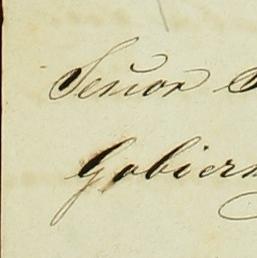 Señor
Gobiern